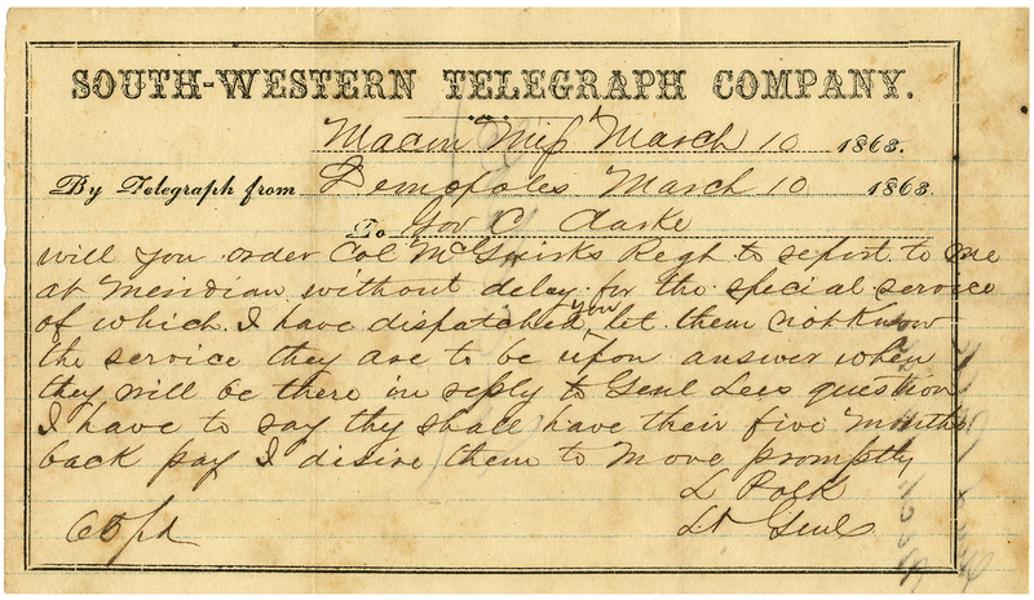 SOUTH-WESTERN TELEGRAPH COMPANY.
Macon Miss March 10 1863.
By Telegraph from Demopoles March 10 1863.
To Gov C Clarke
will you order Col McGuirks Regt to report to me
at Meridian without delay for the special service
of which I have dispatched you let them not know
the service they are to be upon answer when
they will be there in reply to Genl Lees question
I have to say thy shall have their five months
back pay I disire them to move promptly
L Polk
Lt Genl